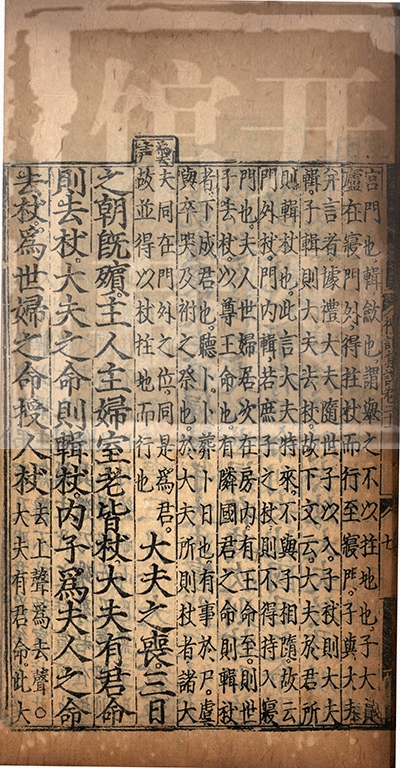 宮門也輯斂也謂舉之不以拄地也子大
廬在寢門外得拄杖而行至寢門子與大夫
并言者據禮大夫隨世子以入子杖則大夫
輯子輯則大夫去杖故下文云大夫於君所
則輯杖也此言大夫特來不與子相隨故云
門外杖門内輯若庶子之杖則不得持入寢
門也夫人世婦居次在房内有王命至則世
子去杖以尊王命也有隣國君之命則輯杖
者下成君也聽卜卜葬卜日也有事於尸虞
與卒哭及祔之祭也於大夫所則杖者諸大
夫同在門外之位同是爲君
故並得以杖拄地而行也
大夫之喪。三日
之朝旣殯。主人主婦室老皆杖。大夫有君命
則去杖。大夫之命則輯杖。内子爲夫人之命
去杖。爲世婦之命授人杖
去上聲爲去聲。○
大夫有君命此大
七
开馆